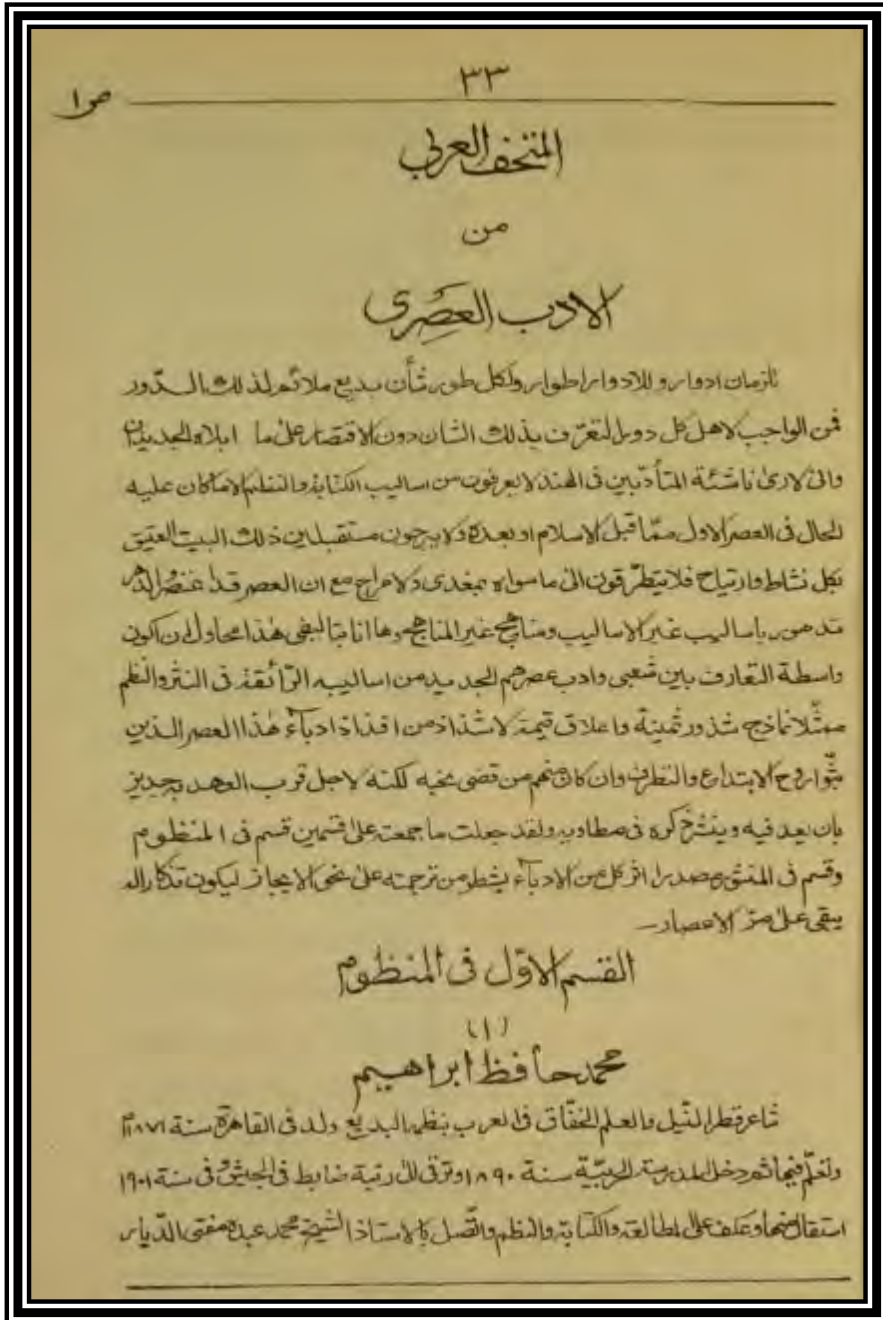 ٣٣
ص١
المتحف العربي
من
الادب العصرى
للزمان ادوار وللادوار اطوار ولكل طور شأن بديع ملائم لذلك الدّور
فمن الواجب لاهل كل دور التعرّف بذلك الشان دون الاقتصار على ما ابلاه الجديدان
وانى لارى ناشئة المتأدّبين فى الهند لا يعرفون من اساليب الكتابة والنظم الا ماكان عليه
الحال فى العصر الاول ممّا قبل الاسلام او بعده ولا يبرحون مستقبلين ذلك البيت العتيق
بكل نشاط وارتياح فلا يتطرّقون الى ما سواه بمغدى ولا مراح مع ان العصر قد
باساليب غير الاساليب ومناهج غير المناهج وها انا هذا محاول ان اكون
واسطة التعارف بين شعبى وادب عصرهم الجديد من اساليبه الرّائقة فى النثر والنظم
ممثّلا نماذج شذور ثمينة واعلاق قيمة لاشذاذ من افذاذ ادبآء هٰذا العصر الذين
بثّوا روح الابتداع والتطرف وان كان منهم من قضى نحبه لكنه لاجل قرب العهد به جدير
بان يعد فيه وينشر ذكره فى مطاويه ولقد جعلت ما جمعته على قسمين قسم فى المنظوم
وقسم فى المنثور مصدرا اثر كل من الادبآء بشطر من ترجمته على نحو الايجاز ليكون تذكارا له
يبقى على مرّ الاعصار ــ
القسم الاوّل فى المنظوم
(١)
محمد حافظ ابراهيم
شاعر قطر النّيل والعلم الخفّاق فى العرب بنظمه البديع ولد فى القاهرة سنة ١٨٧١م
وتعلّم فيها ثم دخل المدرسة الحربيّة سنة ١٨٩٠ وترقى الى رتبة ضابط فى الجيش وفى سنة ١٩٠١
استقال منها وعكف على المطالعة والكتابة والنظم واتّصل بالاستاذ الشيخ محمد عبده مفتى الدّيار